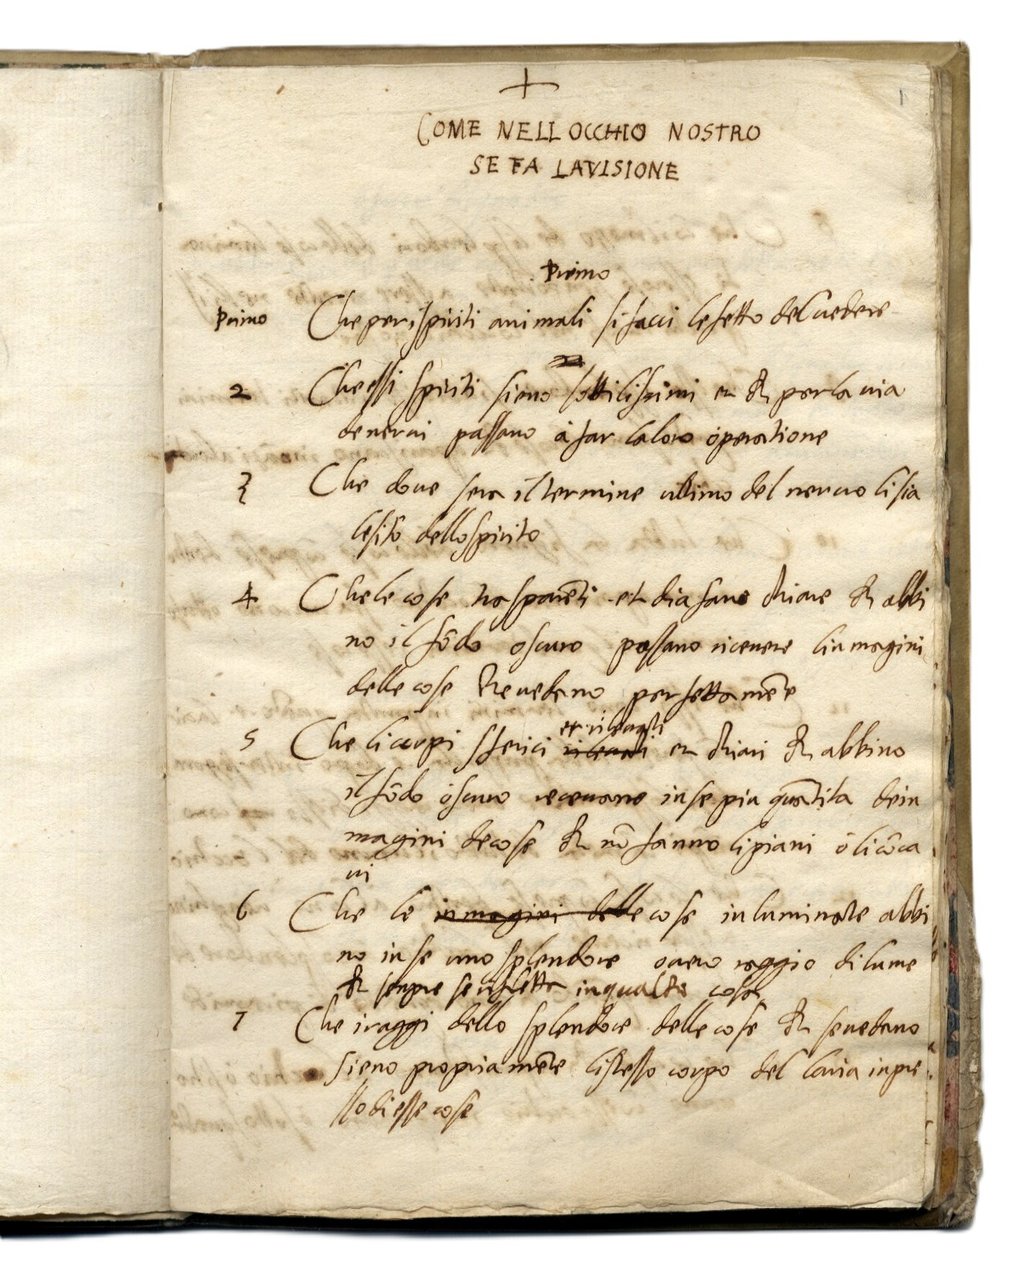 1
COME NELL OCCHIO NOSTRO
SE FA LA VISIONE
Primo
Primo Che per i spiriti animali si facci lefetto del uedere
2 Che essi spiriti sieno sottilissimi et per la uia
de nerui passano à far la loro operatione
3 Che doue sera il termine ultimo del neruo li sia
lesito dello spirito
4 Che le cose trasparēti et diafane chiare ch abbi
no il fōdo oscuro possano riceuere lin magini
delle cose che uedano perfettamēte
et rileuati
5 Che li corpi sferici et chiari ch abbino
il fōdo oscuro receuano in se piu quātita de in
magini de cose ch nō fanno li piani ò li cōca
ui
6 Che le inmagini delle cose inluminate abbi
no in se uno splendore ouero raggio di lume
ch senpre se rifletta in qualche cosa
7 Che i raggi dello splendore delle cose ch se uedano
sieno propriamēte listesso corpo del laria inpre
sso di esse cose